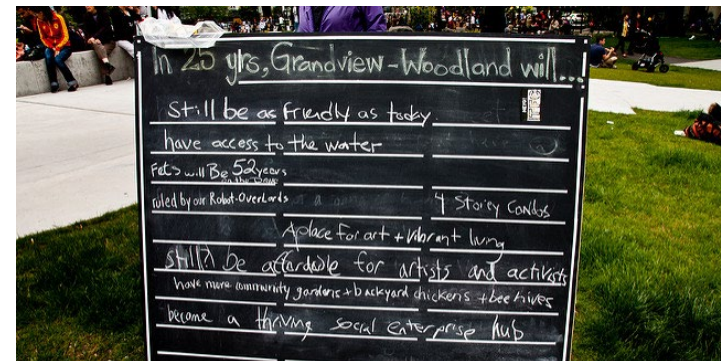 In 25 yrs, Grandview-Woodland will...
Still be as friendly as today
have access to the water
Fet's will Be 52 years
on the Drive
ruled by our Robot-OverLords
4 Storey Condos
A place for art + vibrant living
still? be affordable for artists and activists
have more community gardens + backyard chickens + bee hives
become a thriving social enterprise hub